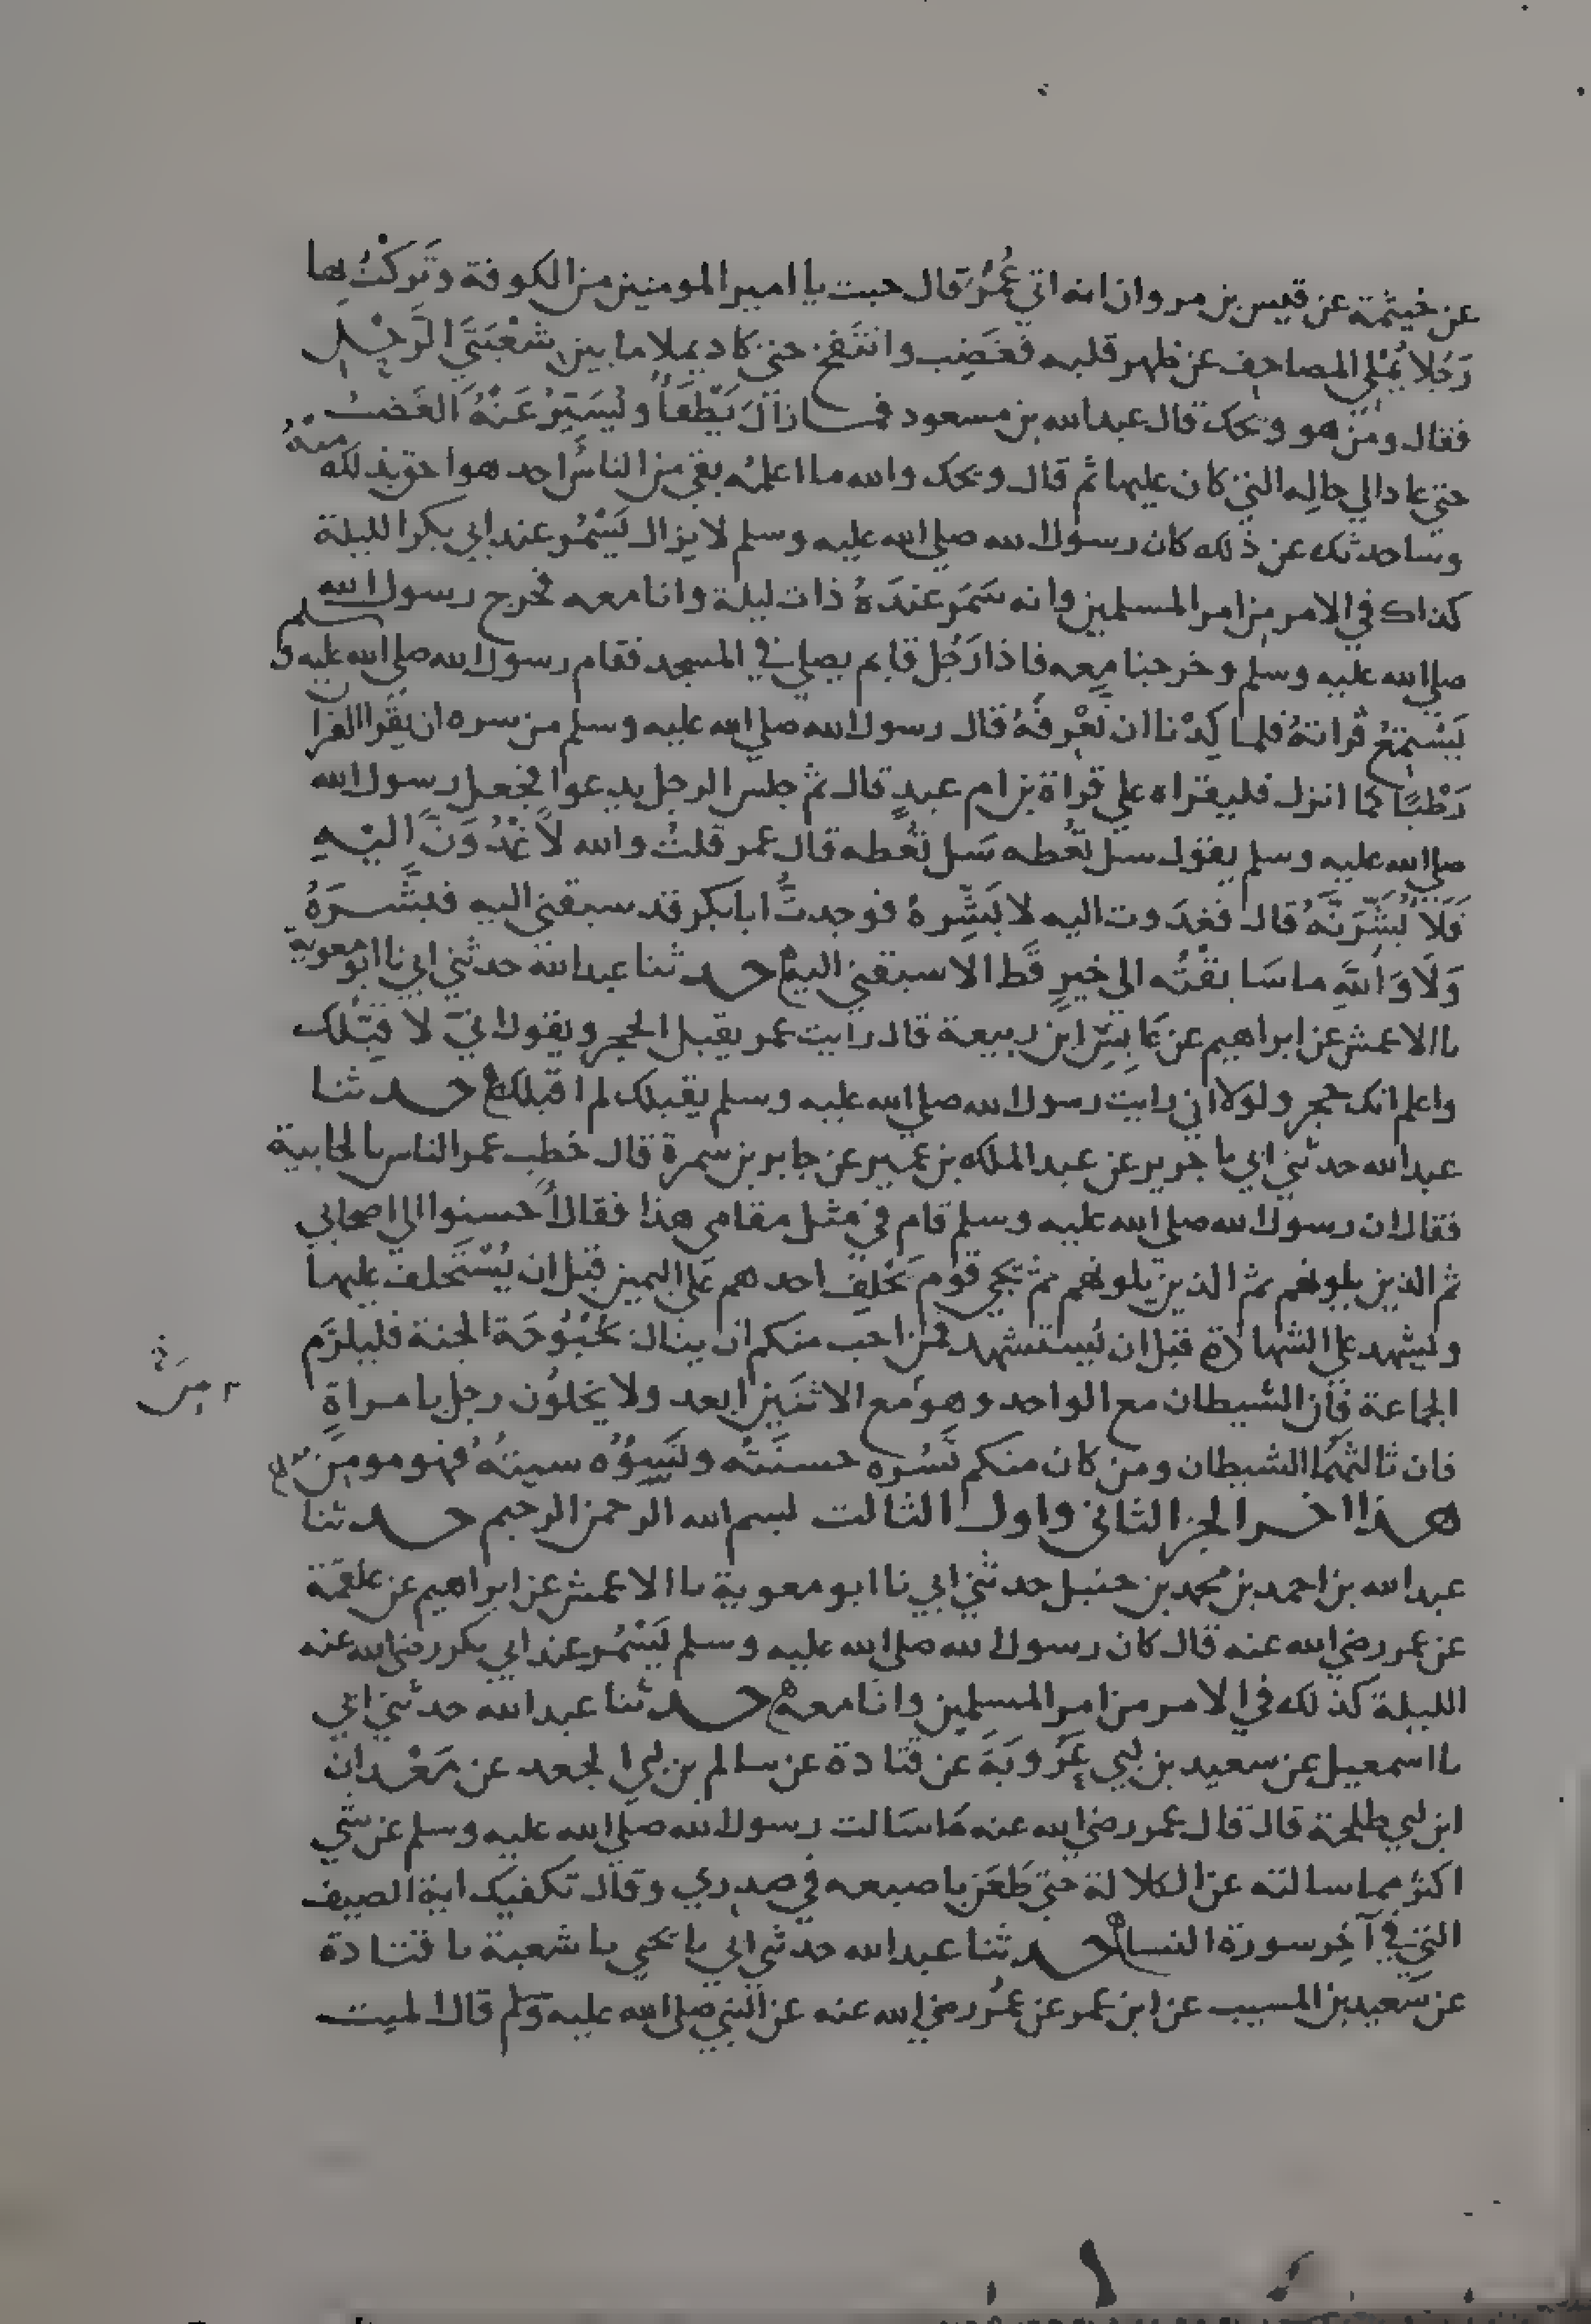 عن خيثمة عن قيس بن مروان انه اتي عُمَرُ قال جيت يا امير المومنين من الكوفة وتَركْتُ بها
رَجُلاً يُمْلي المصاحف عن ظهر قلبه فغَضِب وانتَفخ حتي كاد يملا ما بين شُعْبَتَي الرَّحْل
فقال ومَن هو ويحك قال عبدالله بن مسعود فمازال يَطْفَأُ ويُسَيَّرُ عَنْهُ الغَضبُ
حتي عاد الي حاله التي كان عليها ثم قال ويحك والله ما اعلمه بقي من الناس احد هو احق بذلك منهُ
وساحدثك عن ذلك كان رسول الله صلي الله عليه وسلم لا يزال يَسْمُر عند ابي بكر الليلة
كذاك في الامر من امر المسلمين وانه سَمَر عندَهُ ذات ليلة وانا معه فخرج رسول الله
صلي الله عليه وسلم وخرجنا معه فاذا رَجُل قايم يصلي في المسجد فقام رسول الله صلي الله عليه وسلم
يَسْتمِعُ قراتهُ فلما كِدْنا ان نَعْرِفَهُ قال رسول الله صلي الله عليه وسلم من سره ان يقرا القران
رَطْبًا كما انزل فليقراه علي قراة بن ام عبدٍ قال ثم جلس الرجل يدعوا فجعل رسول الله
صلي الله عليه وسلم يقول سل تُعْطه سَل تُعْطه قال عمر قلتُ والله لاَغْدُوَنَّ اليْهِ
فَلَاُبَشِّرَنَّهُ قال فغدَوت اليه لابَشِّرهُ فوجدتُّ ابا بكر قد سبقني اليه فبَشَّرَهُ
وَلَا وَاللَّهِ ما سَابقْتُه الي خيرٍ قَط الا سبقني اليه حدثنا عبدالله حدثني ابي نا ابو معوية
نا الاعمش عن ابراهيم عن عَابِسِ ابن ربيعة قال رايت عمر يقبل الحجر ويقول اني لاقبّلك
واعلم انك حجر ولولا اني رايت رسول الله صلي الله عليه وسلم يقبلك لم اقبلك حدثنا
عبدالله حدثني ابي نا جرير عن عبد الملك بن عمير عن جابر بن سمرة قال خطب عمر الناس بالجابية
فقال ان رسول الله صلي الله عليه وسلم قام في مثل مقامي هذا فقال اَحسنوا الي اصحابي
ثم الذين يلونهم ثم الذين يلونهم ثم يجي قوم يَحْلِف احدهم عَلي اليمين قبل ان يُسْتَحلف عليها
ويَشهد علي الشهادة قبل ان يُستشهد فمن احب منكم ان ينال بُحْبُوحَة الجنة فليلزَم
الجماعة فان الشيطان مع الواحد وهو مع الاثنَين ابعد ولا يخلوُن رجل بامراةٍ
فان ثالثهما الشيطان ومن كان منكم تَسُره حسنَتُه وتَسوُؤُه سيتهُ فهو مومِن
هذا اخر الجز الثاني واول الثالث بسم الله الرحمن الرحيم حدثنا
عبدالله بن احمد بن محمد بن حنبل حدثني ابي نا ابو معوية نا الاعمش عن ابراهيم عن علقمَة
عن عمر رضي الله عنه قال كان رسول الله صلي الله عليه وسلم يَسْمُر عند ابي بكر رضي الله عنه
الليلة كذلك في الامر من امر المسلمين وانا معه حدثنا عبدالله حدثني ابي
نا اسمعيل عن سعيد بن ابي عَرُوبَةَ عن قتادة عن سالم بن ابي الجعد عن مَعْدان
ابن ابي طلحة قال قال عمر رضي الله عنه مَا سَالت رسول الله صلي الله عليه وسلم عن شي
اكثر مما سالته عن الكلالة حتي طَعَن باصبعه في صدري وقال تكفيك اية الصيف
التي في آخِر سورة النسا حدثنا عبدالله حدثني ابي نا يحيي نا شعبة نا قتادة
عن سَعيد بن المسيب عن ابن عمر عن عمُر رضي الله عنه عن النبي صلي الله عليه وسلم قال الميت